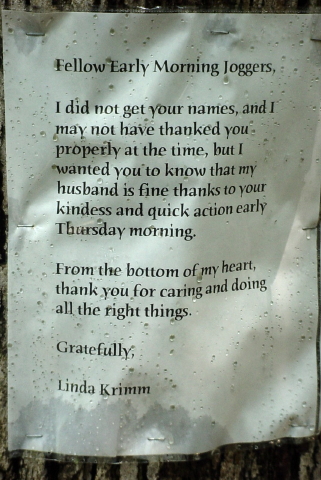 Fellow Early Morning Joggers,
I did not get your names, and I
may not have thanked you
properly at the time, but I
wanted you to know that my
husband is fine thanks to your
kindess and quick action early
Thursday morning.
From the bottom of my heart,
thank you for caring and doing
all the right things.
Gratefully,
Linda Krimm